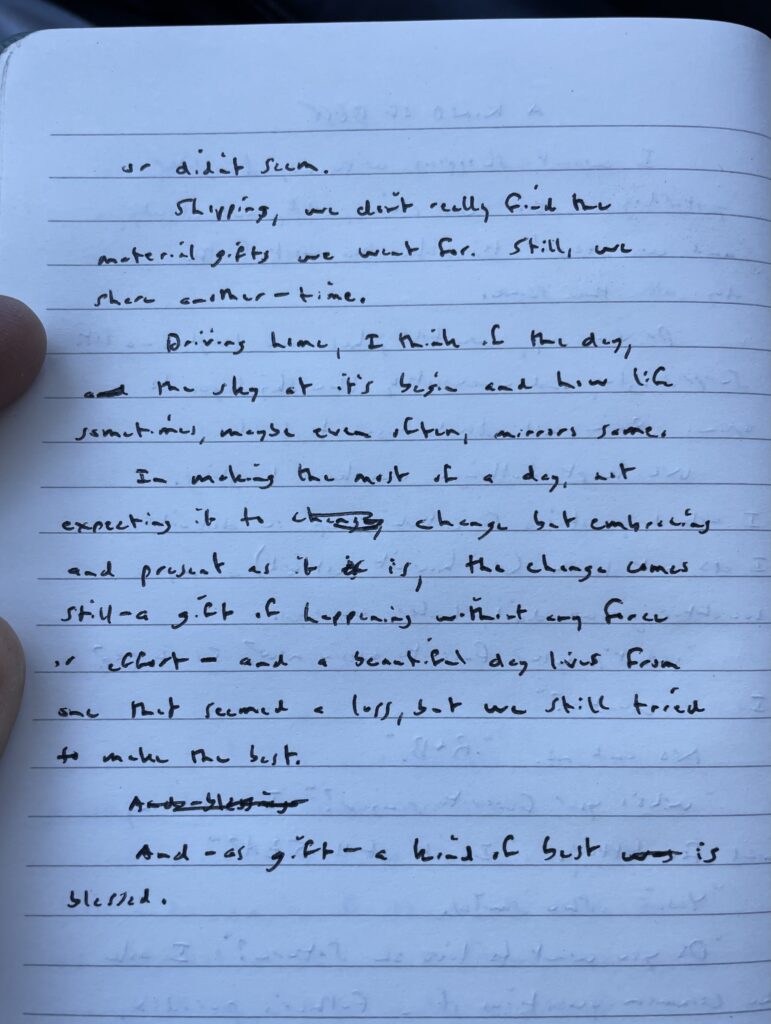 or didn't seem.
Shopping, we don't really find the
material gifts we went for. Still, we
share another - time.
Driving home, I think of the day,
and the sky at it's begin and how life
sometimes, maybe even often, mirrors same.
In making the most of a day, not
expecting it to change change but embracing
and present as it is is, the change comes
still - a gift of happening without any force
or effort - and a beautiful day lives from
one that seemed a loss, but we still tried
to make the best.
And - blessings
And - as gift - a kind of best was is
blessed.